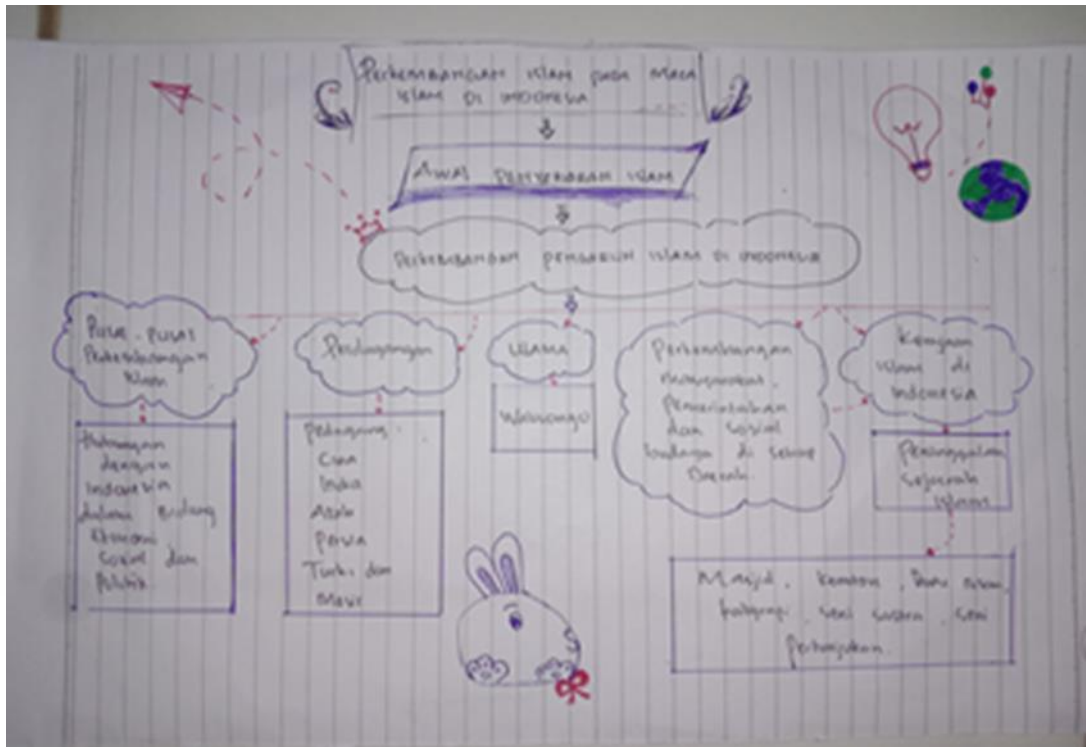 Perkembangan Islam pada Masa
Islam di Indonesia
Awal Penyebaran Islam
Perkembangan pengaruh Islam di Indonesia
Pusat-Pusat
Perkembangan
Islam
Hubungan
dengan
Indonesia
dalam Bidang
Ekonomi
Sosial dan
Politik
Perdagangan
Pedagang :
Cina
India
Arab
Persia
Turki dan
Mesir
Ulama
Walisongo
Perkembangan
masyarakat,
Pemerintahan
dan Sosial
budaya di setiap
Daerah.
Kerajaan
Islam di
Indonesia
Peninggalan
Sejarah
Islam
Masjid, Keraton, Batu nisan,
kaligrafi, seni sastra, seni
Pertunjukan.